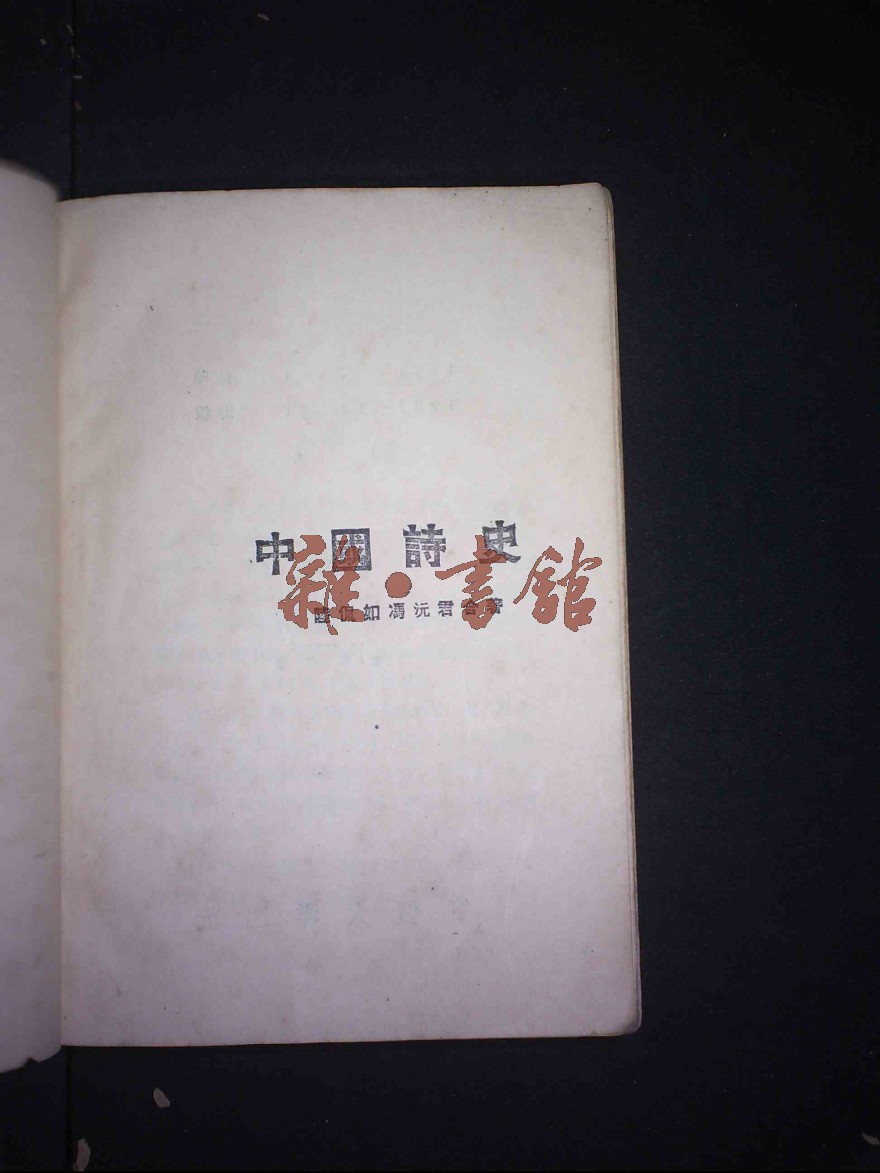 中國詩史
陸侃如馮沅君合著
雜·書館